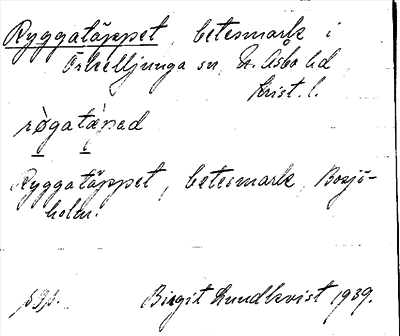 Ryggatäppet, betesmark i
Örkelljunga sn, N. Åsbo hd
Krist. l.
rø̀gatæ̀pad
Ryggatäppet, betesmark, Bosjö-
holm.
Birgit Lundkvist 1939.